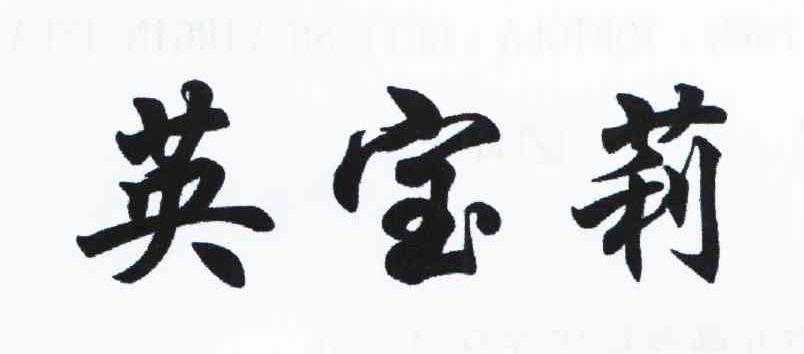 英宝莉